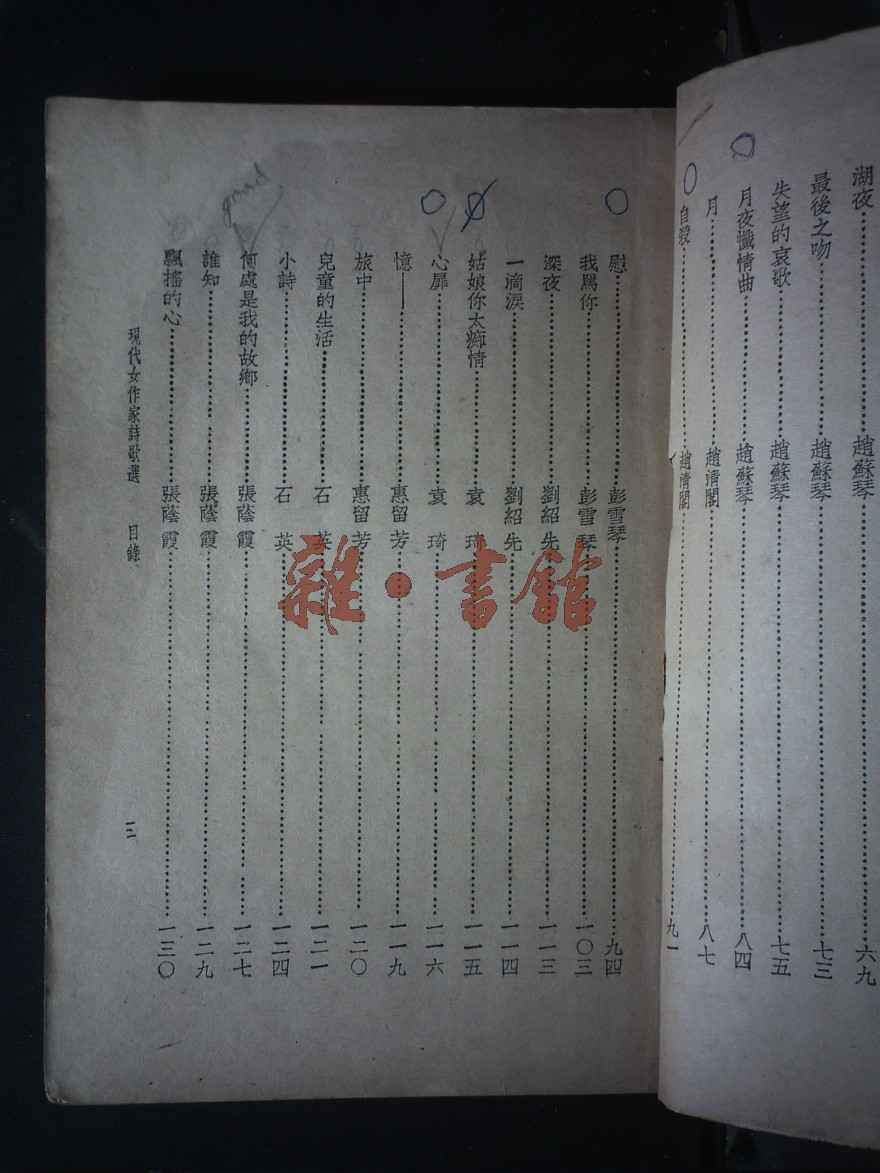 湖夜……趙蘇琴……六九
最後之吻……趙蘇琴……七三
失望的哀歌……趙蘇琴……七五
月夜懺情曲……趙蘇琴……八四
月……趙清閣……八七
自殺……趙清閣……九一
慰……彭雪琴……九四
我罵你……彭雪琴……一〇三
深夜……劉紹先……一一三
一滴淚……劉紹先……一一四
姑娘你太痴情……袁琦……一一五
心扉……袁琦……一一六
憶——……惠留芳……一一九
旅中……惠留芳……一二〇
兒童的生活……石英……一二一
小詩……石英……一二四
何處是我的故鄉……張蔭霞……一二七
誰知……張蔭霞……一二九
飄搖的心……張蔭霞……一三〇
現代女作家詩歌選 目錄
雜·書館